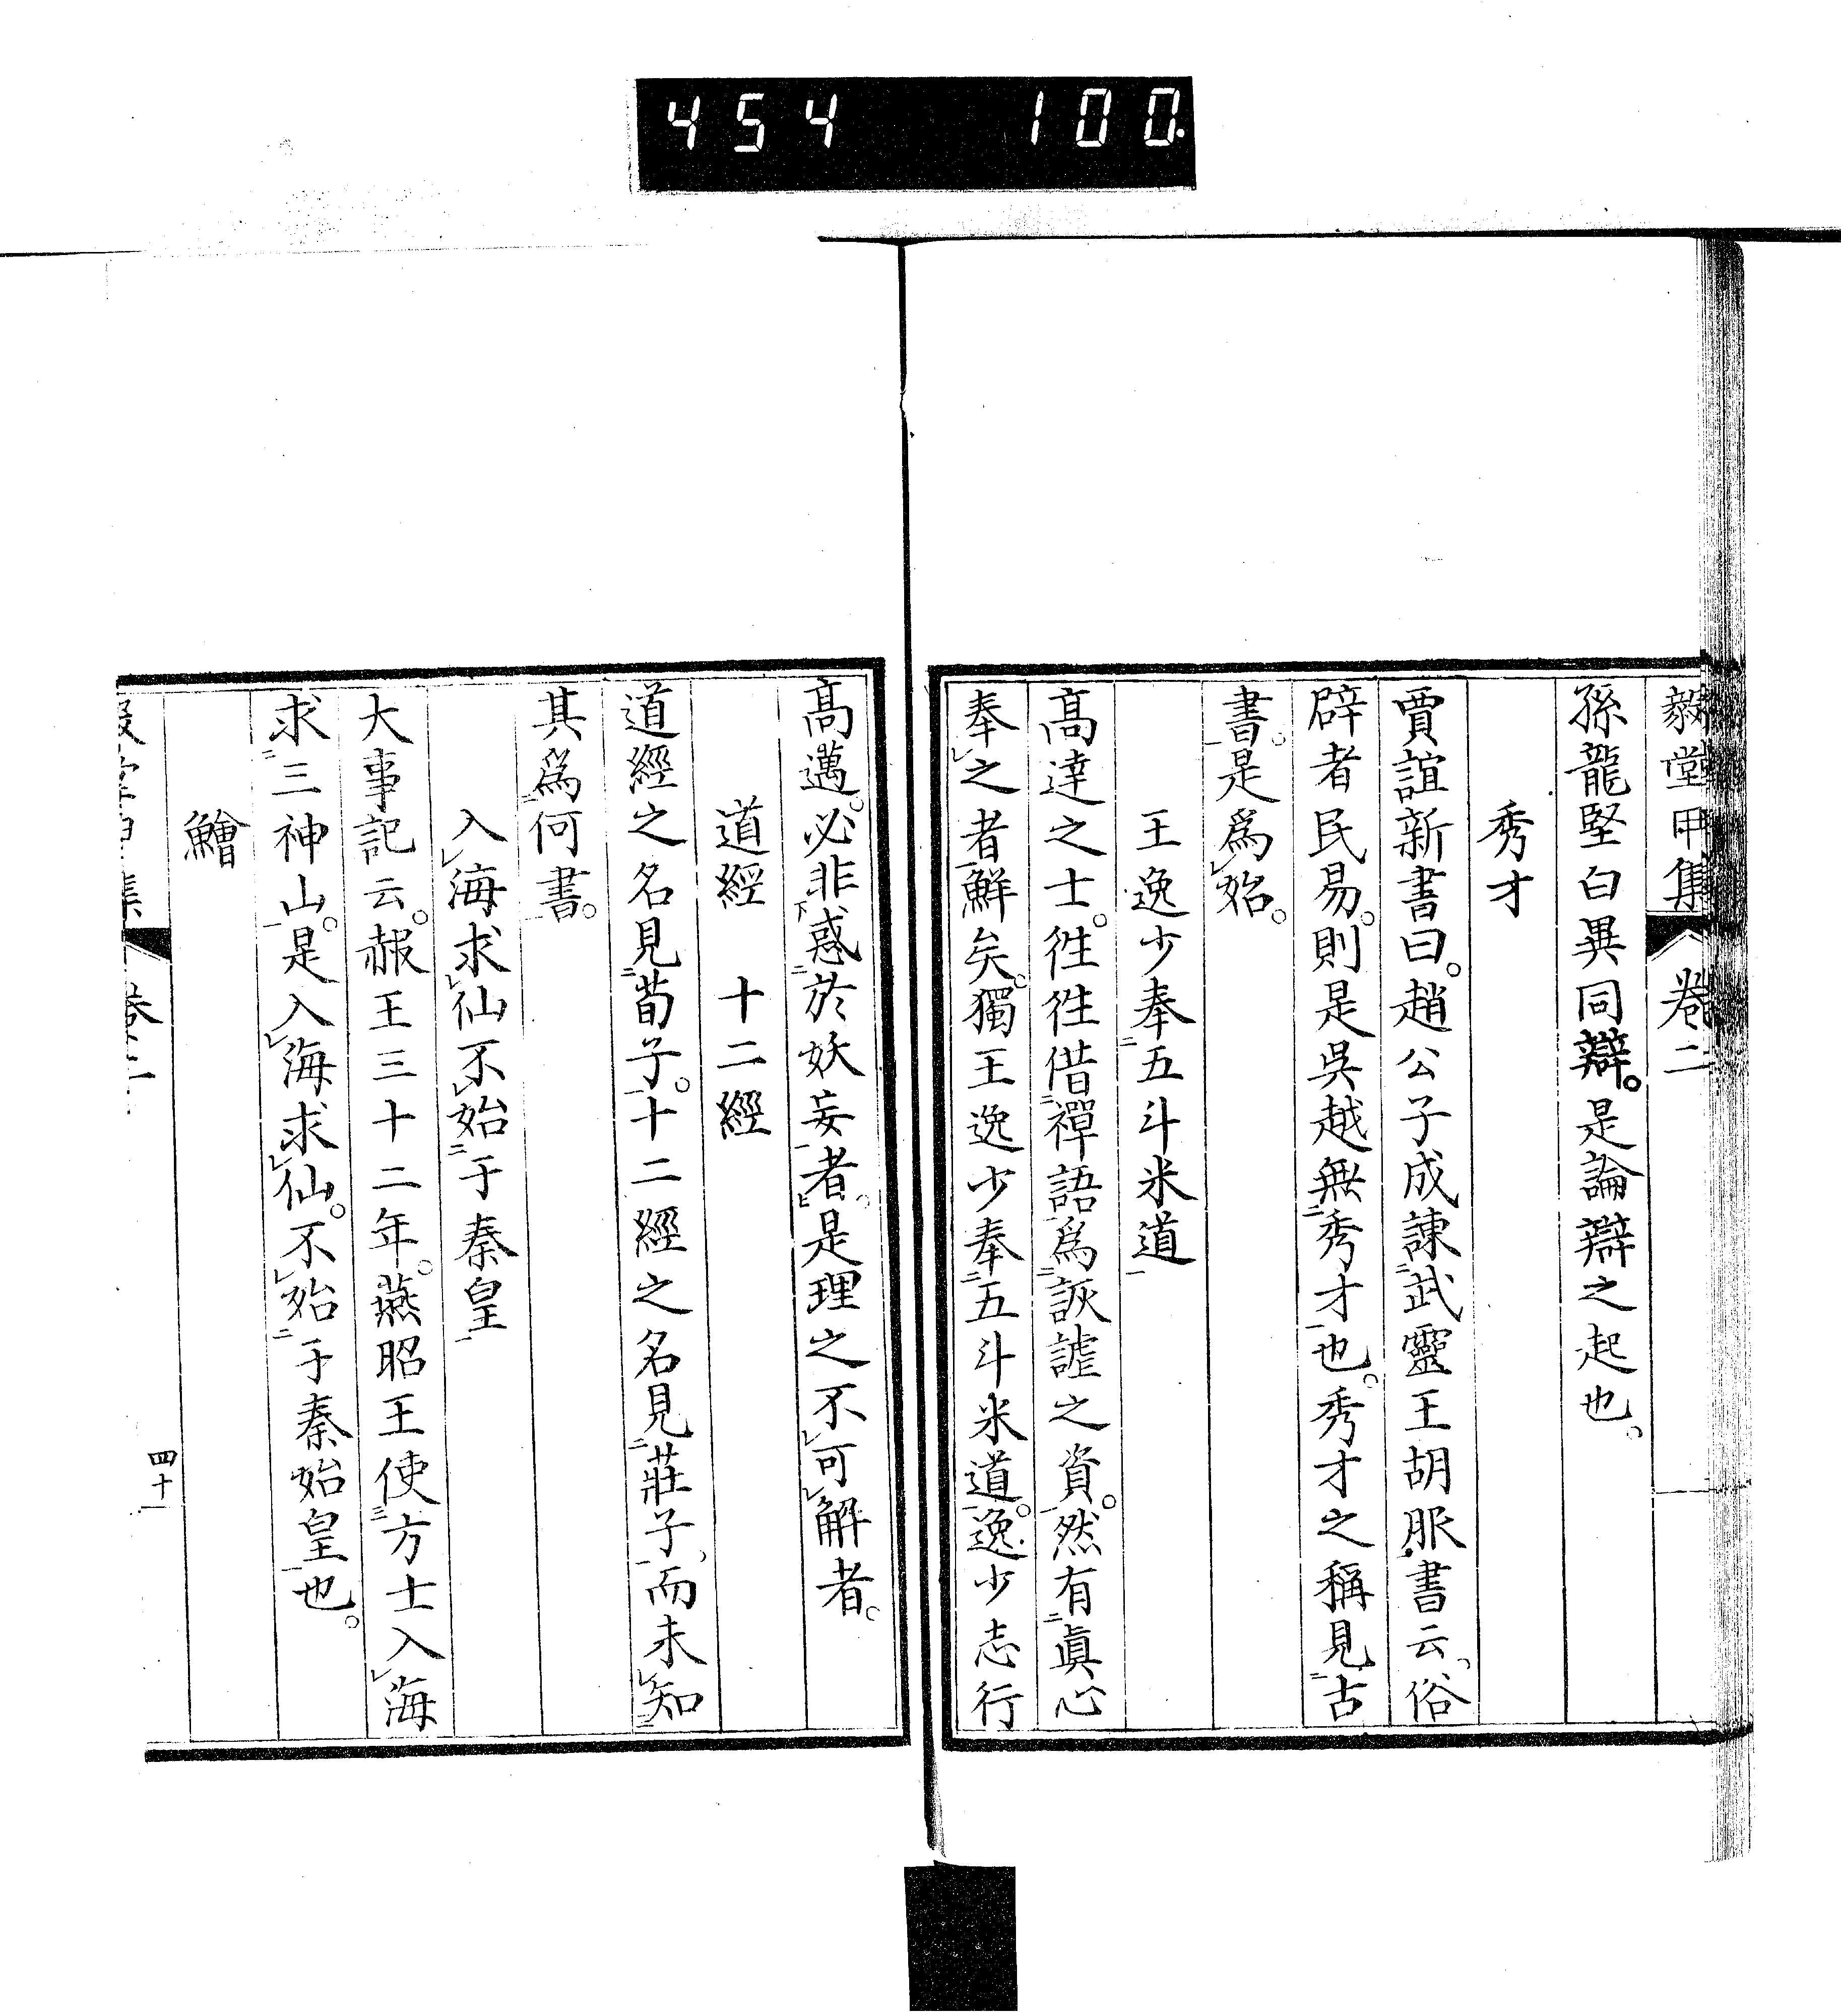 454 100.
毅堂甲集 卷二
孫龍堅白異同辯。是論辯之起也。
秀才
賈誼新書曰。趙公子成諫武靈王胡服書云。俗
辟者民易。則是吳越無秀才也。秀才之稱見古
書。是爲始。
王逸少奉五斗米道
高達之士。徃徃借禪語爲詼謔之資。然有眞心
奉之者鮮矣。獨王逸少奉五斗米道。逸少志行
高邁。必非惑於妖妄者。是理之不可解者。
道經 十二經
道經之名見荀子。十二經之名見莊子。而未知
其爲何書。
入海求仙不始于秦皇
大事記云。赧王三十二年。燕昭王使方士入海
求三神山。是入海求仙。不始于秦始皇也。
鱠
毅堂甲集 卷二 四十